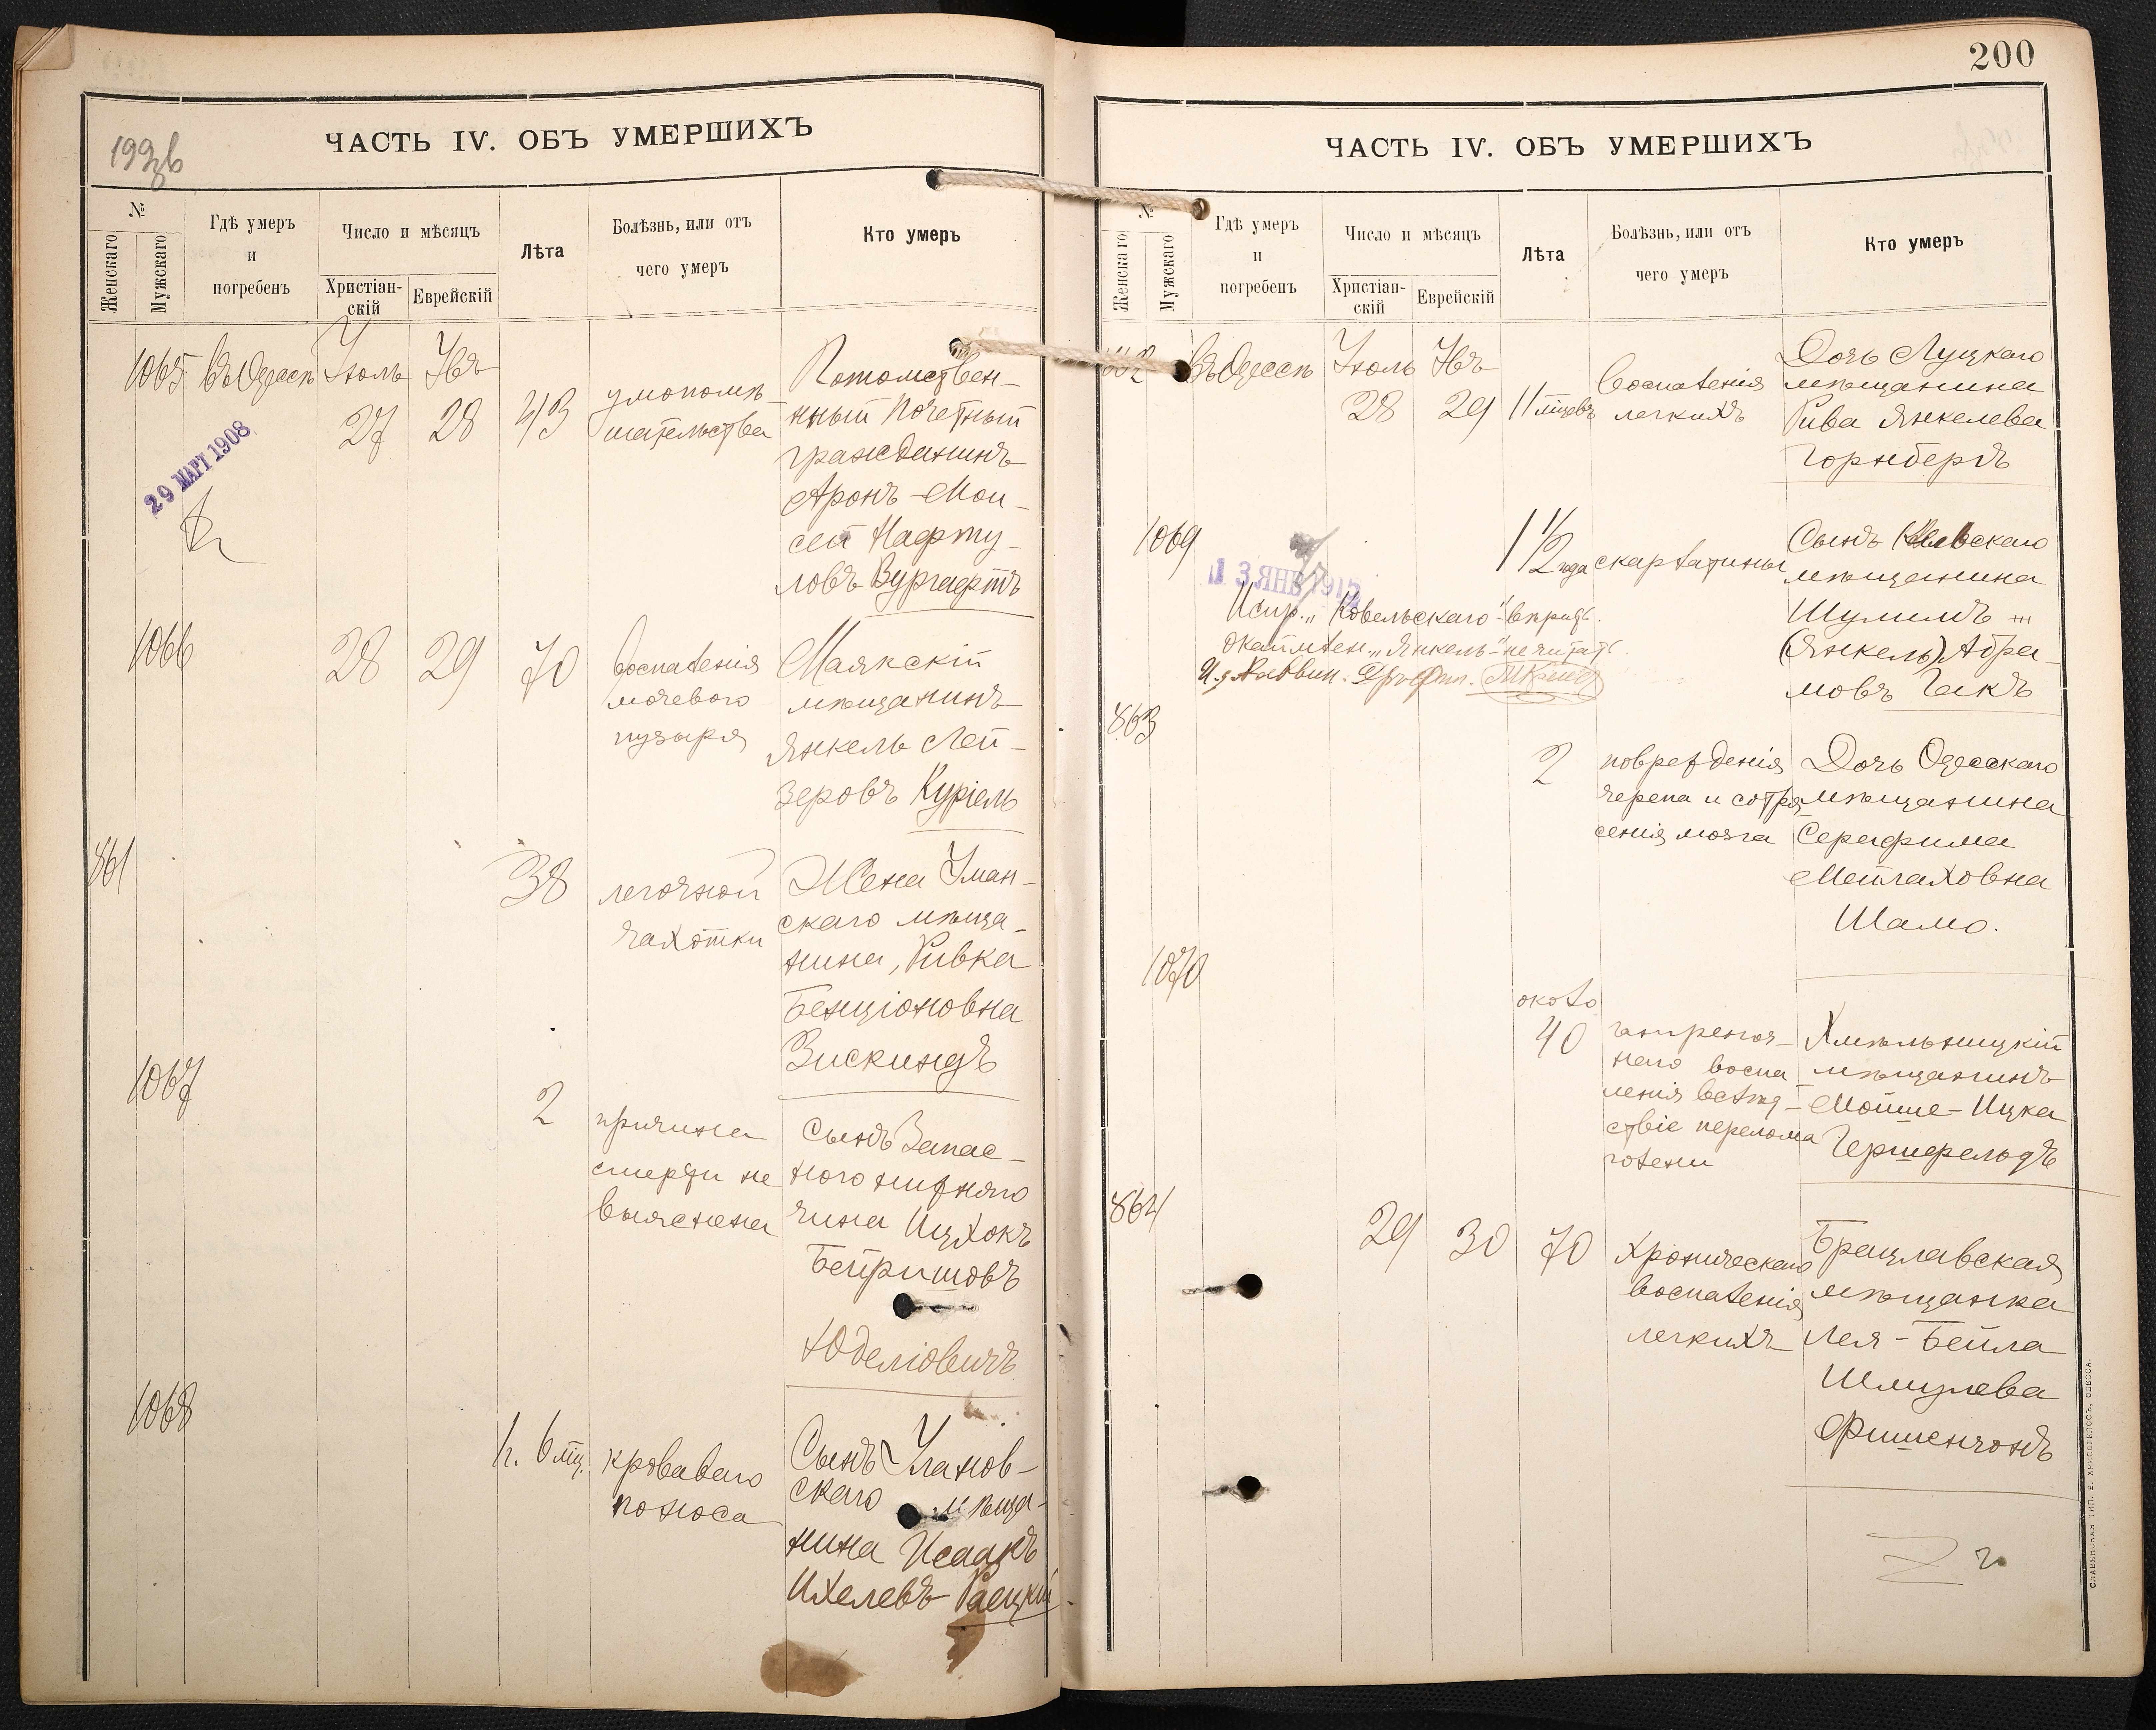 199об
ЧАСТЬ IV. ОБЪ УМЕРШИХЪ
№
Женскаго
Мужскаго
Гдѣ умеръ
и
погребенъ
Число и мѣсяцъ
Христіан-
скій
Еврейскій
Лѣта
Болѣзнь, или отъ
чего умеръ
Кто умеръ
1065 въ Одессѣ Іюль Ывъ
27 28 43
умопомѣ-
шательства
Потомствен-
ный почетный
гражданинъ
Аронъ-Мои-
сей Нафту-
ловъ Вургафтъ
29 МАРТ 1908
1066 28 29 70
воспаленія
мочевого
пузыря
Маякскій
мѣщанинъ
Янкель Лей-
зеровъ Куріель
861 38
легочной
чахотки
Жена Уман-
скаго мѣща-
нина, Ривка
Бенціоновна
Зискиндъ
1067 2
причина
смерти не
выяснена
Сынъ Запас-
ного нижняго
чина Ицхокъ
Бейришовъ
Юделіовичъ
1068
1 г. 6 мѣц.
кроваваго
поноса
Сынъ Улановъ-
скаго мѣща-
нина Исаакъ
Ихелевъ Раецкій
200
ЧАСТЬ IV. ОБЪ УМЕРШИХЪ
№
Женскаго
Мужскаго
Гдѣ умеръ
и
погребенъ
Число и мѣсяцъ
Христіан-
скій
Еврейскій
Лѣта
Болѣзнь, или отъ
чего умеръ
Кто умеръ
862 въ Одессѣ Іюль Ывъ
28 29 11 мѣцевъ
воспаленія
легкихъ
Дочь Луцкаго
мѣщанина
Рива Янкелева
Горнбергъ
1069
1 1/2 года
скарлатины
Сынъ
мѣщанина
Шулимъ
(Янкель) Абра-
мовъ Гакъ
13 ЯНВ 191
Испр. „Ковельскаго" вѣрить.
Окаймлен. „Янкель" не читать.
И. д. Раввин.
863 2
поврежденія
черепа и сотря-
сенія мозга
Дочь Одесскаго
мѣщанина
Серафима
Мейлаховна
Шамо.
1070
около
40
гангреноз-
наго воспа-
ленія вслѣд-
ствіе перелома
голени
Хмѣльницкій
мѣщанинъ
Мойше-Ицка
Гершфельдъ
864 29 30 70
Хроническаго
воспаленія
легкихъ
Брацлавская
мѣщанка
Лея-Бейла
Шмулева
Фишензонъ
СЛАВЯНСКАЯ ТИП. Е. ХРИСОГЕЛОСЪ, ОДЕССА.